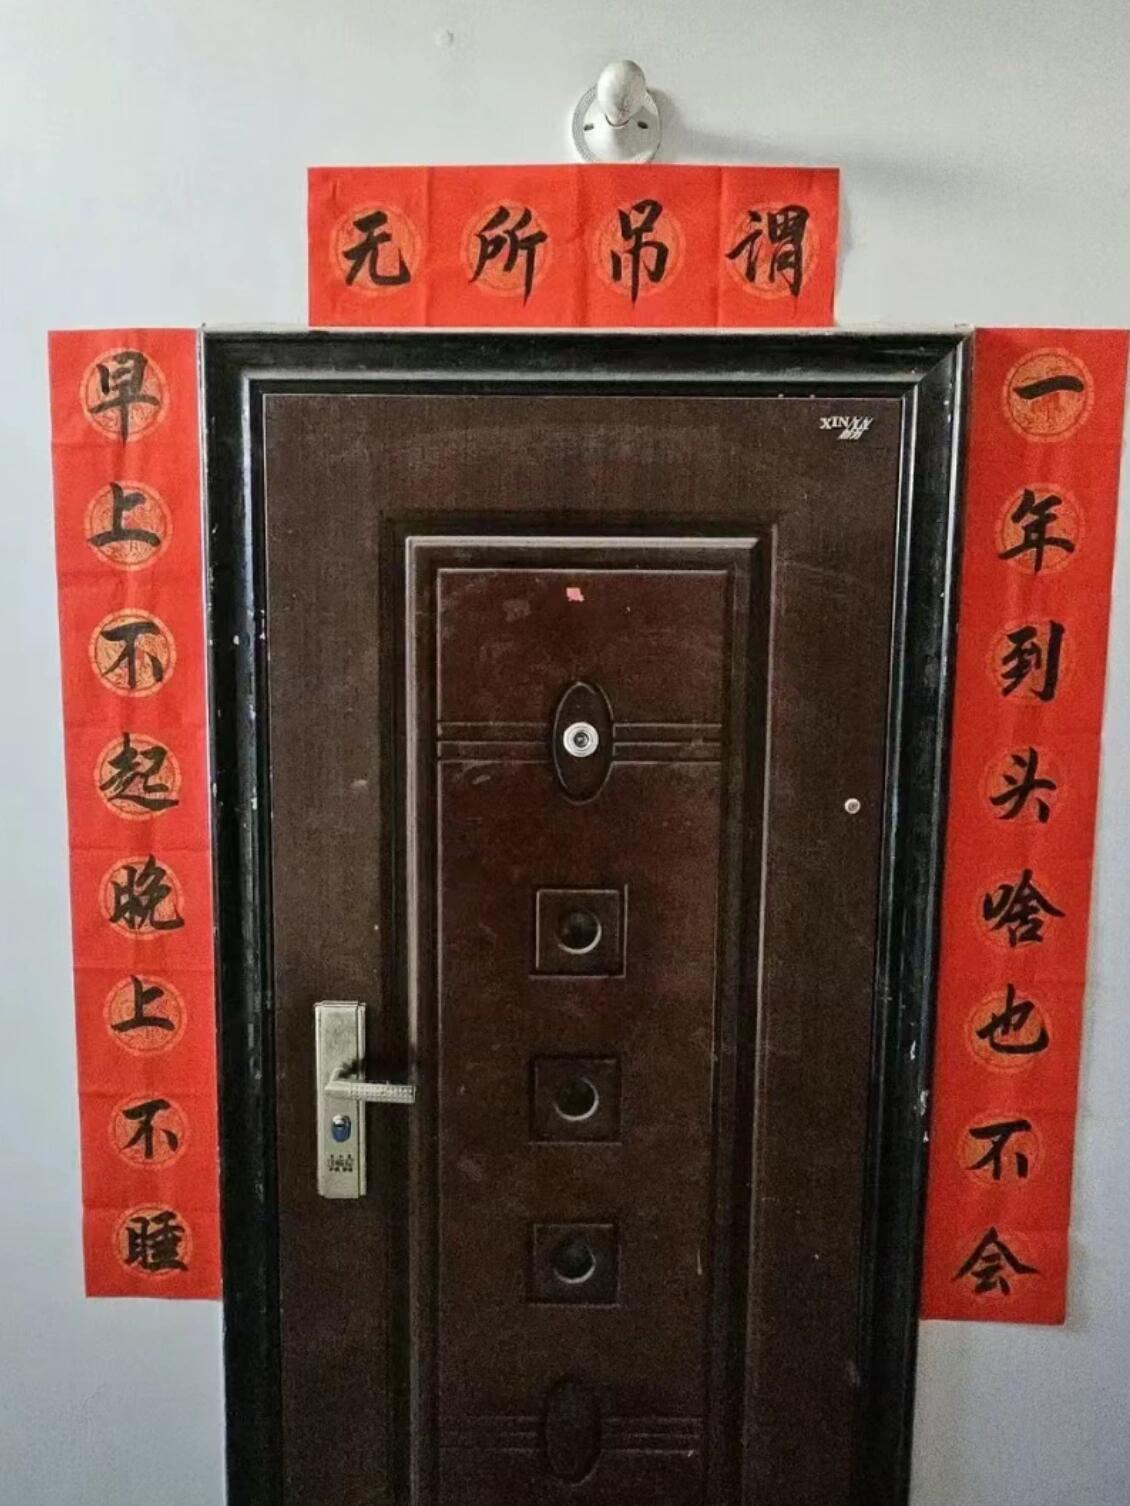 无所吊谓
早上不起晚上不睡
一年到头啥也不会